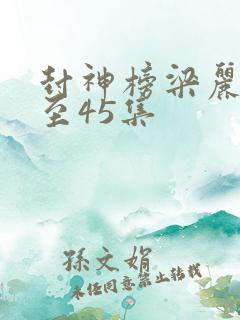 封神榜梁麗
至45集
孫文娟
未经同意禁止转载